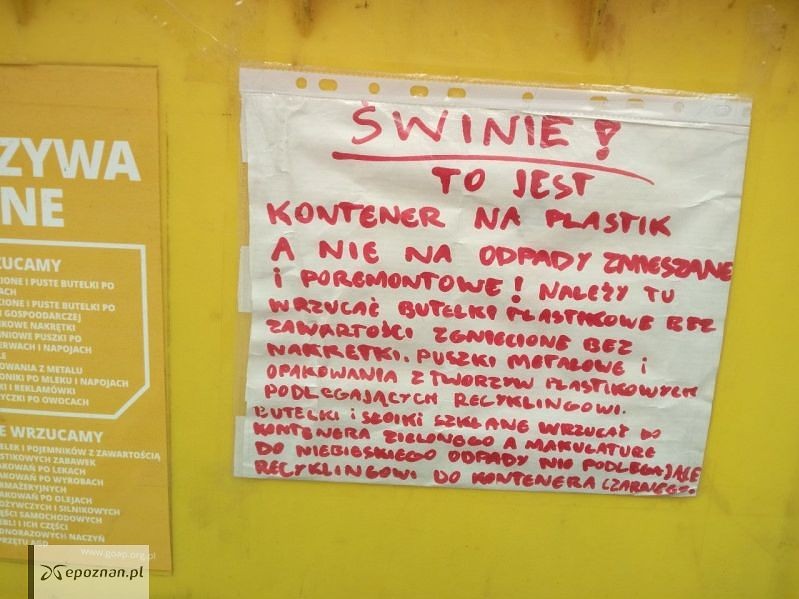 ZYWA
NE
ZUCAMY
CIONE I PUSTE BUTELKI PO
ACH
CIONE I PUSTE BUTELKI PO
I GOSPODARCZEJ
IKOWE NAKRĘTKI
NIOWE PUSZKI PO
ERWACH I NAPOJACH
LE
OWANIA Z METALU
ONIKI PO MLEKU I NAPOJACH
KI I REKLAMÓWKI
YCZKI PO OWOCACH
E WRZUCAMY
ELEK I POJEMNIKÓW Z ZAWARTOŚCIĄ
STIKOWYCH ZABAWEK
AKOWAŃ PO LEKACH
AKOWAŃ PO WYROBACH
RMAŻERYJNYCH
AKOWAŃ PO OLEJACH
OŻYWCZYCH I SILNIKOWYCH
ĘŚCI SAMOCHODOWYCH
EBLI I ICH CZĘŚCI
DNORAZOWYCH NACZYŃ
PRZĘTU AGD
www.goap.org.pl
ŚWINIE!
TO JEST
KONTENER NA PLASTIK
A NIE NA ODPADY ZMIESZANE
I POREMONTOWE! NALEŻY TU
WRZUCAĆ BUTELKI PLASTIKOWE BEZ
ZAWARTOŚCI ZGNIECIONE BEZ
NAKRĘTKI. PUSZKI METALOWE I
OPAKOWANIA Z TWORZYW PLASTIKOWYCH
PODLEGAJĄCYCH RECYKLINGOWI.
BUTELKI I SŁOIKI SZKLANE WRZUCAĆ DO
KONTENERA ZIELONEGO A MAKULATURE
DO NIEBIESKIEGO ODPADY NIE PODLEGAJĄCE
RECYKLINGOWI DO KONTENERA CZARNEGO.
epoznan.pl